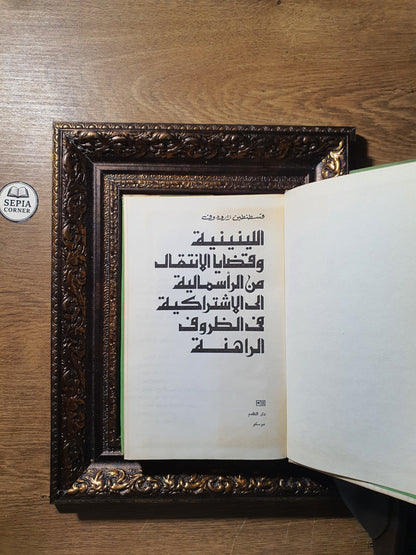 SEPIA
CORNER
قسطنطين
اللينينية
وقضايا الانتقال
من الرأسمالية
الى الاشتراكية
فى الظروف
الراهنة
دار التقدم
موسكو